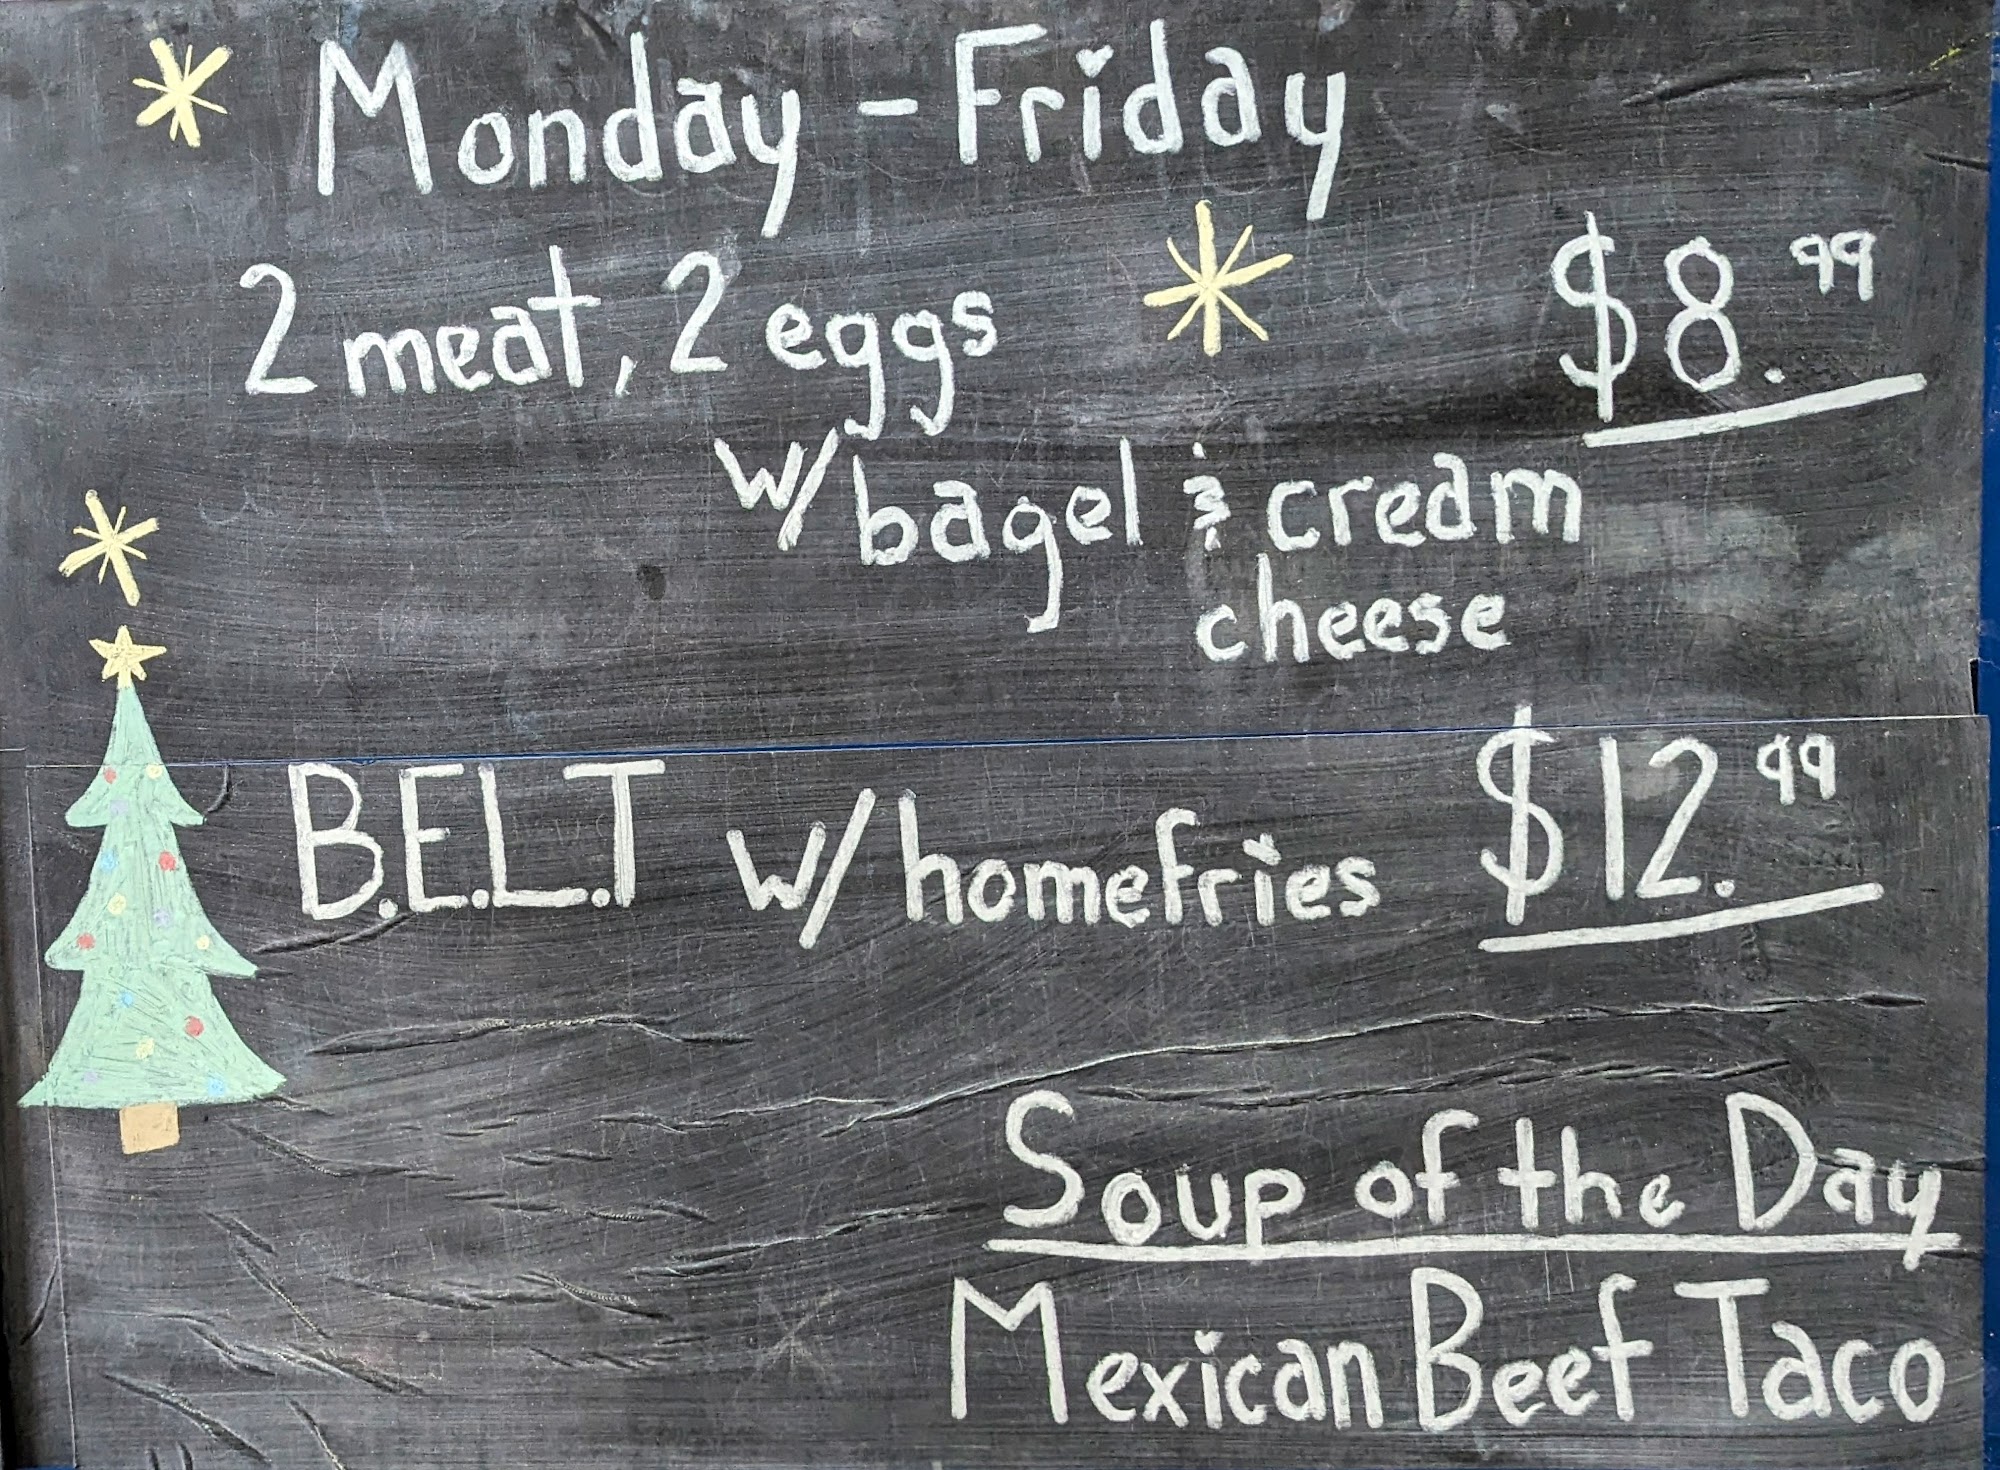 Monday - Friday
2 meat, 2 eggs $8.99
w/ bagel & cream
cheese
B.E.L.T w/ homefries $12.99
Soup of the Day
Mexican Beef Taco